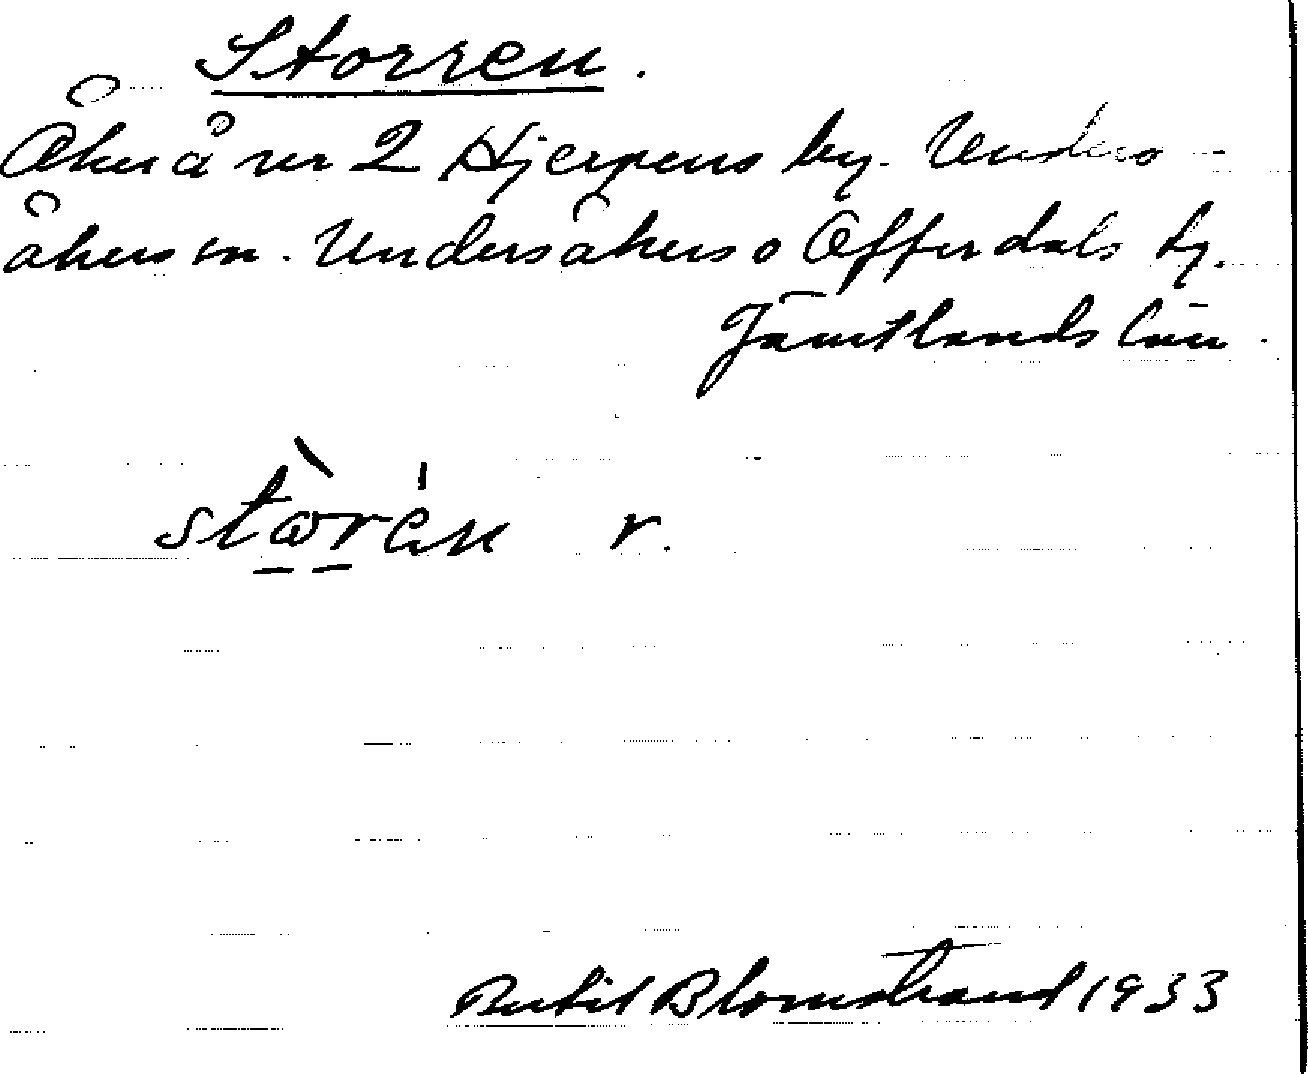 Storren.
Åker å nr 2 Hjerpens by. Unders-
åkers sn. Undersåkers o Offerdals tg.
Jämtlands län.
stωrèn r.
Bertil Blomstrand 1933